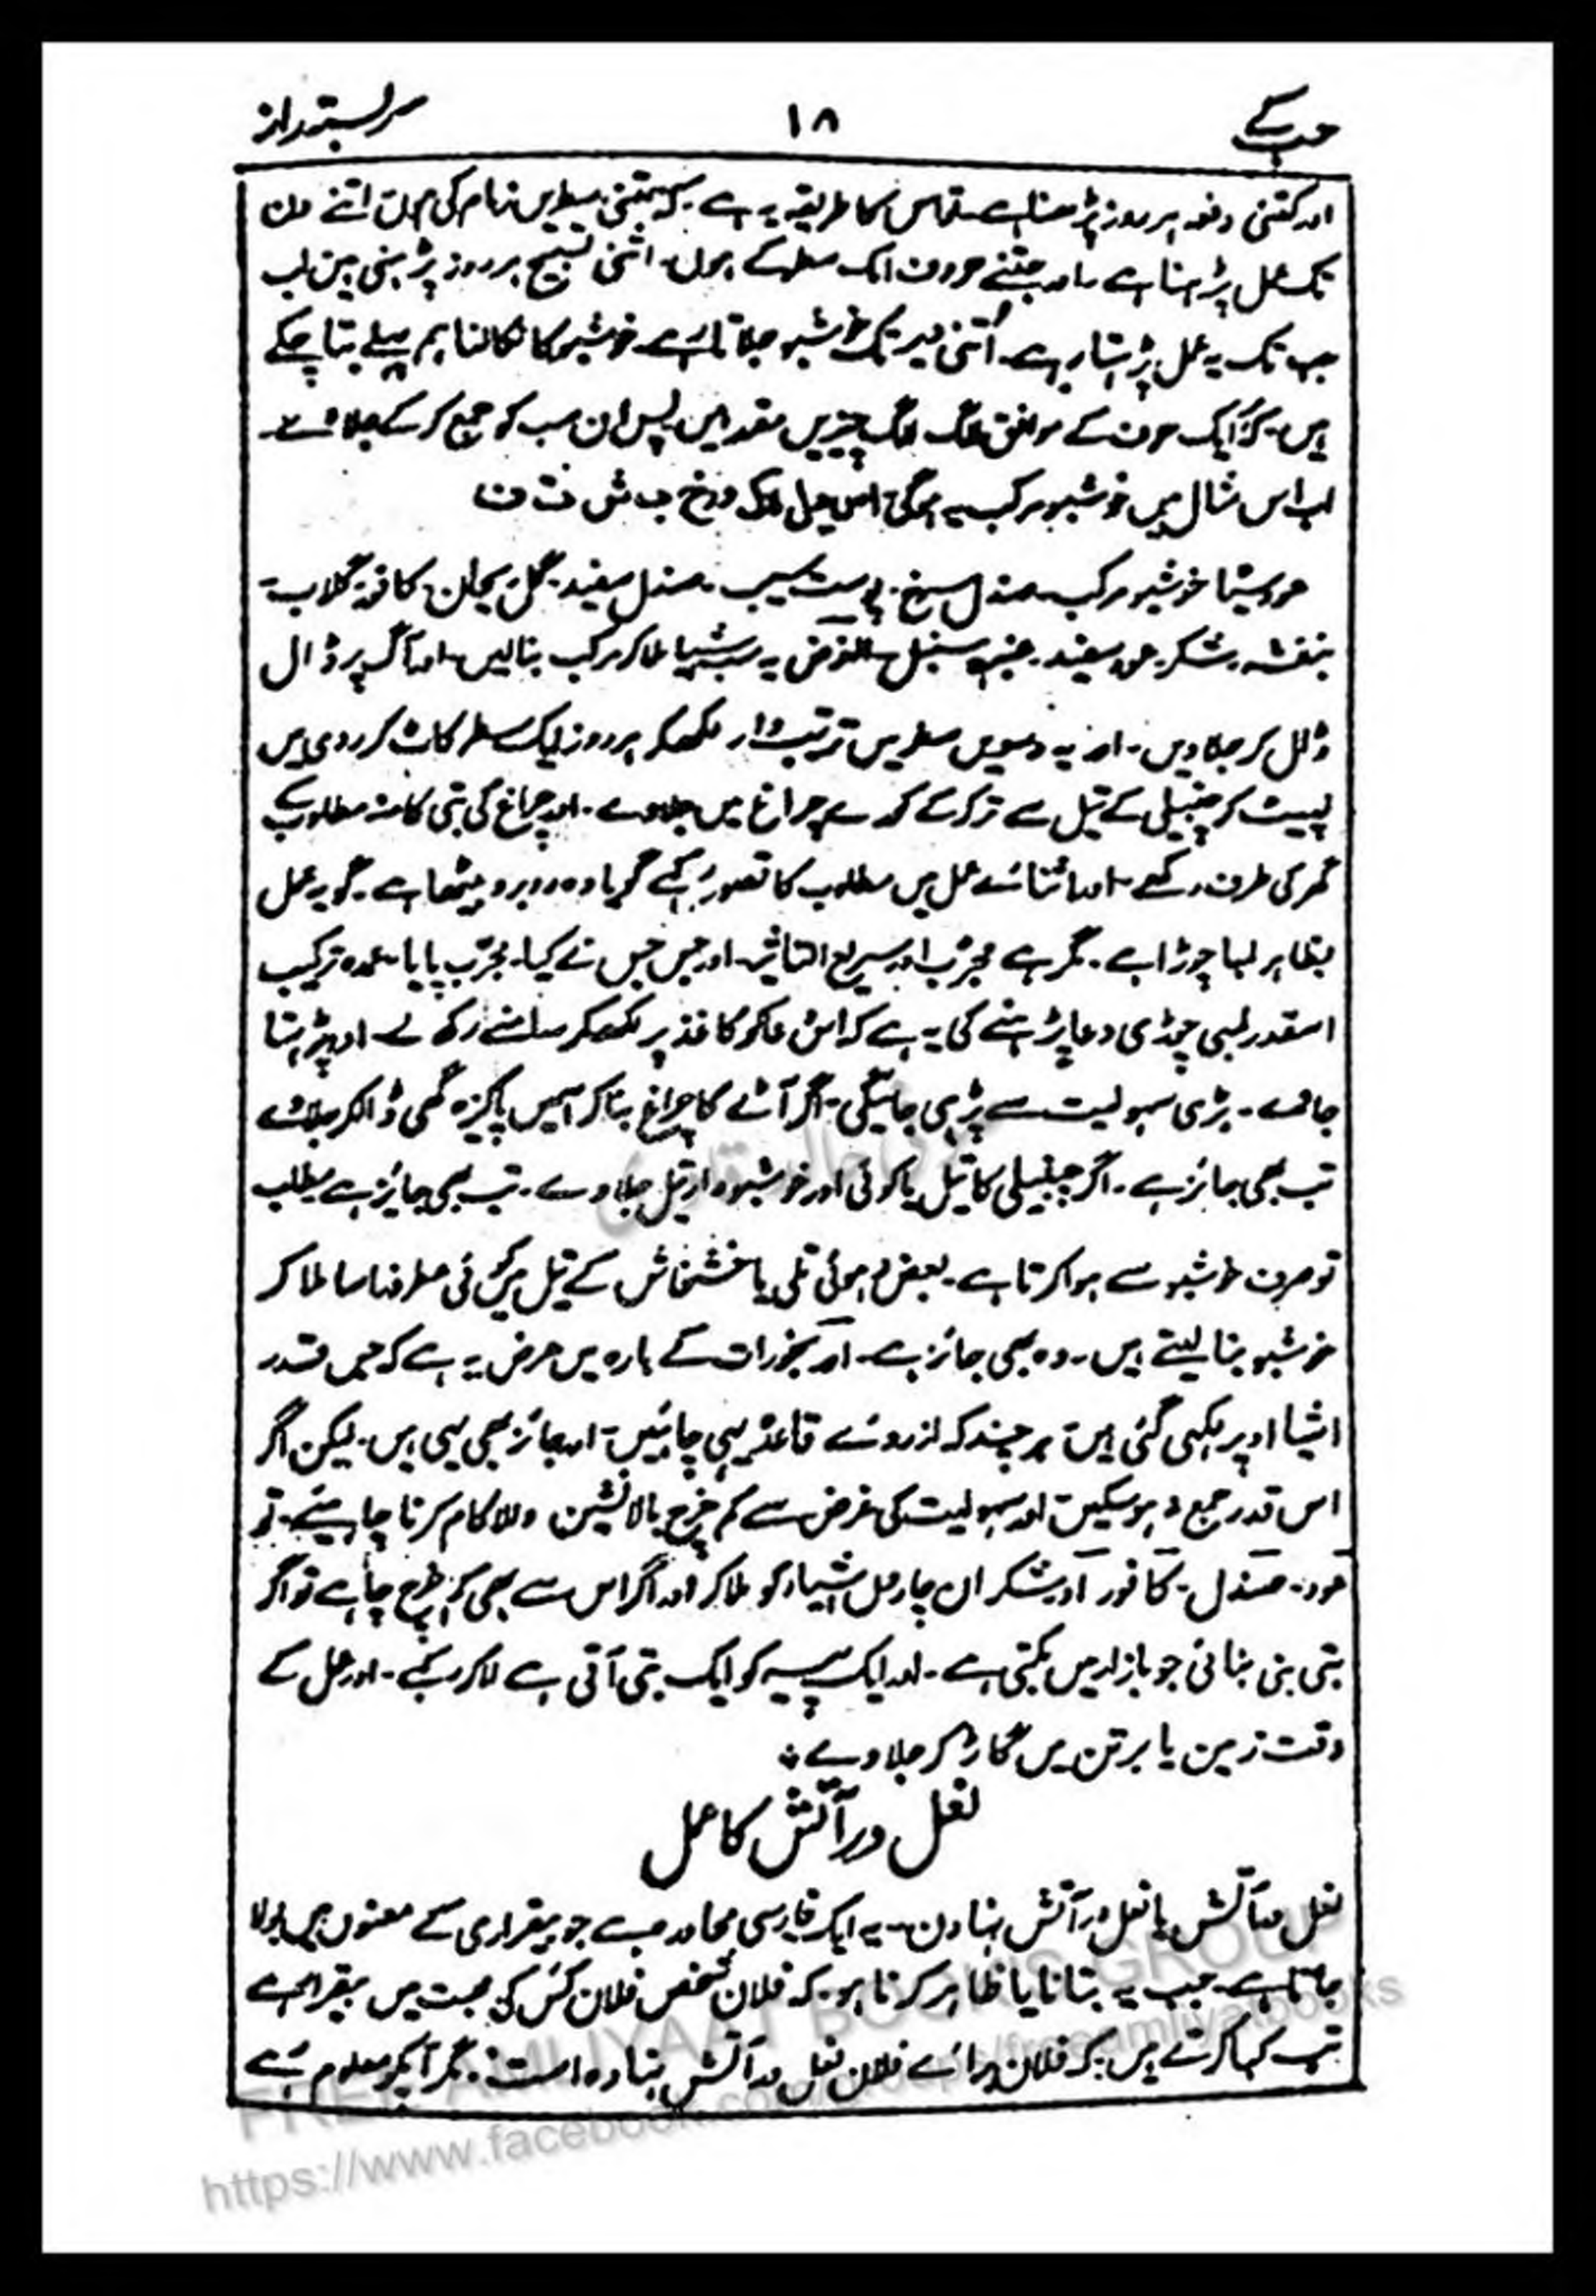 حب کے ۱۸ سربستہ راز
اور کتنی دفعہ ہر روز پڑھنا ہے۔ تو اس کا طریقہ یہ ہے۔ کہ جتنی سطریں زمام کی ہوں اتنے دن
تک عمل پڑہنا ہے۔ اور جتنے حروف ایک سطر کے ہوں۔ اتنی تسبیح ہر روز پڑہنی ہیں اب
جب تک یہ عمل پڑہتا رہے۔ اُتنی دیر تک خوشبو جلاتا رہے۔ خوشبو کا نکالنا ہم پہلے بتا چکے
ہیں۔ کہ ایک حرف کے موافق الگ الگ چیزیں مقرر ہیں۔ پس ان سب کو جمع کر کے جلاوے۔
اب اس مثال میں خوشبو مرکب یہ ہوگی
خوشبو مرکب۔ صندل سرخ۔ پوست سیب۔ صندل سفید۔ گل ریحان۔ کافور۔ گلاب۔
بنفشہ۔ شکر۔ عود سفید۔ عنبر۔ سنبل۔ الغرض یہ سب اشیا ملا کر مرکب بنالیں۔ اور آگ پر ڈال
ڈال کر جلا دیں۔ اور یہ دسویں سطریں ترتیب وار لکھکر ہر روز ایک سطر کاٹ کر روئی میں
لپیٹ کر چنبیلی کے تیل سے تر کر کے کورے چراغ میں جلاوے۔ اور چراغ کی بتی کا منہ مطلوب کے
گھر کی طرف رکھے۔ اور اثنائے عمل میں مطلوب کا تصور رکہے گویا وہ روبرو بیٹھا ہے۔ گو یہ عمل
بظاہر لمبا چوڑا ہے۔ مگر ہے مجرّب اور سریع التاثیر۔ اور جس جس نے کیا۔ مجرّب پایا۔ عمدہ ترکیب
اسقدر لمبی چوڑی دعا پڑہنے کی یہ ہے کہ اس دعا کو کاغذ پر لکھکر سامنے رکھ لے۔ اور پڑہتا
جاوے۔ بڑی سہولیت سے پڑہی جائیگی۔ اگر آٹے کا چراغ بنا کر اسمیں پاکیزہ گھی ڈالکر جلاوے
تب بھی جائز ہے۔ اگر چنبیلی کا تیل یا کوئی اور خوشبودار تیل جلاوے۔ تب بھی جائز ہے۔ مطلب
تو صرف خوشبو سے ہوا کرتا ہے۔ بعض دہوئی تلی یا خشخاش کے تیل میں کوئی عطر ذرا سا ملا کر
خوشبو بنا لیتے ہیں۔ وہ بھی جائز ہے۔ اور بخورات کے بارہ میں عرض یہ ہے کہ جس قدر
اشیا اوپر لکہی گئی ہیں۔ ہر چند کہ از روئے قاعدہ یہی چاہئیں۔ اور جائز بھی یہی ہیں۔ لیکن اگر
اس قدر جمع نہ ہوسکیں۔ اور سہولیت کی غرض سے کم خرچ بالا نشین والا کام کرنا چاہیئے۔ تو
عود۔ صندل۔ کافور اور شکر ان چاروں اشیاء کو ملا کر اور اگر اس سے بھی کم خرچ چاہے تو اگر
بتی بنی بنائی جو بازار میں بکتی ہے۔ اور ایک پیسہ کو ایک بتی آتی ہے لا کر رکہے۔ اور عمل کے
وقت زمین یا برتن میں گاڑ کر جلاوے ÷
نعل در آتش کا عمل
نعل در آتش یا نعل در آتش نہادن۔ یہ ایک فارسی محاورہ ہے جو بیقراری کے معنوں میں بولا
جاتا ہے۔ جب یہ بتانا یا ظاہر کرنا ہو۔ کہ فلان شخص فلان کس کی محبت میں بیقرار ہے
تب کہا کرتے ہیں۔ کہ فلان برائے فلان نعل در آتش نہادہ است۔ مگر آپکو معلوم رہے
FREE AMLIYAAT BOOKS GROUP
https://www.facebook.com/groups/freeamliyatbooks